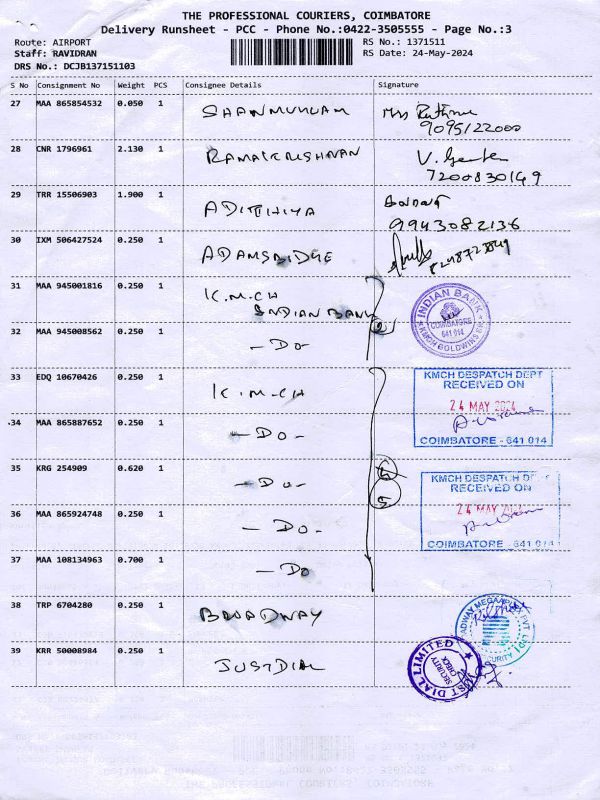 THE PROFESSIONAL COURIERS, COIMBATORE
Delivery Runsheet - PCC - Phone No.:0422-3505555 - Page No.:3
Route: AIRPORT RS No.: 1371511
Staff: RAVIDRAN RS Date: 24-May-2024
DRS No.: DCJB137151103
S No Consignment No Weight PCS Consignee Details Signature
27 MAA 865854532 0.050 1 SHANMUKAM Mrs
9095122000
28 CNR 1796961 2.130 1 RAMAKRISHNAN V.
7200830149
29 TRR 15506903 1.900 1 ADITHIYA
9943082136
30 IXM 506427524 0.250 1 ADAMSBIDGE
31 MAA 945001816 0.250 1 K.M.CH
INDIAN BANK
INDIAN BANK
COIMBATORE
641 014
KMCH GOLDWINS BR
32 MAA 945008562 0.250 1 - DO -
33 EDQ 10670426 0.250 1 K.M.CH
KMCH DESPATCH DEPT
RECEIVED ON
24 MAY 2024
COIMBATORE - 641 014
34 MAA 865887652 0.250 1 - DO -
35 KRG 254909 0.620 1 - DO -
5
KMCH DESPATCH DEPT
RECEIVED ON
24 MAY 2024
COIMBATORE - 641 014
36 MAA 865924748 0.250 1 - DO -
37 MAA 108134963 0.700 1 - DO
38 TRP 6704280 0.250 1 BROADWAY
39 KRR 50008984 0.250 1 JUSTDIAL
JUST DIAL LIMITED
SECURITY
CHECK